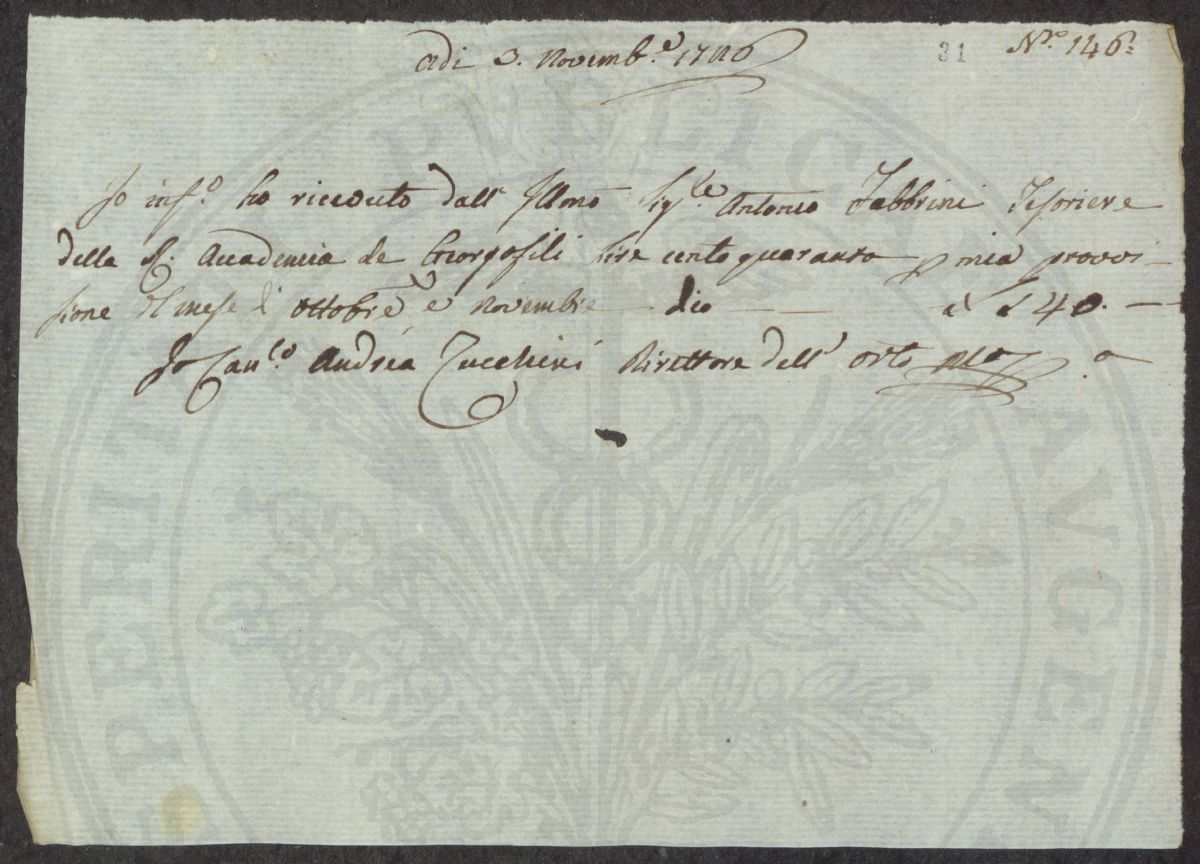 Adi 3. Novemb.e 1786
31 N.ro 146:
Io inf.o ho riceuto dall' Illmo Sig.le Antonio Fabbrini Tesoriere
della R. Accademia de Giorgofili lire cento quaranta p mia provvi-
sione del mese di Ottobre e Novembre dico £ 140. —
Io Can.co Andrea Zucchini Direttore dell' orto
PERITA PVBLICA AVGEN